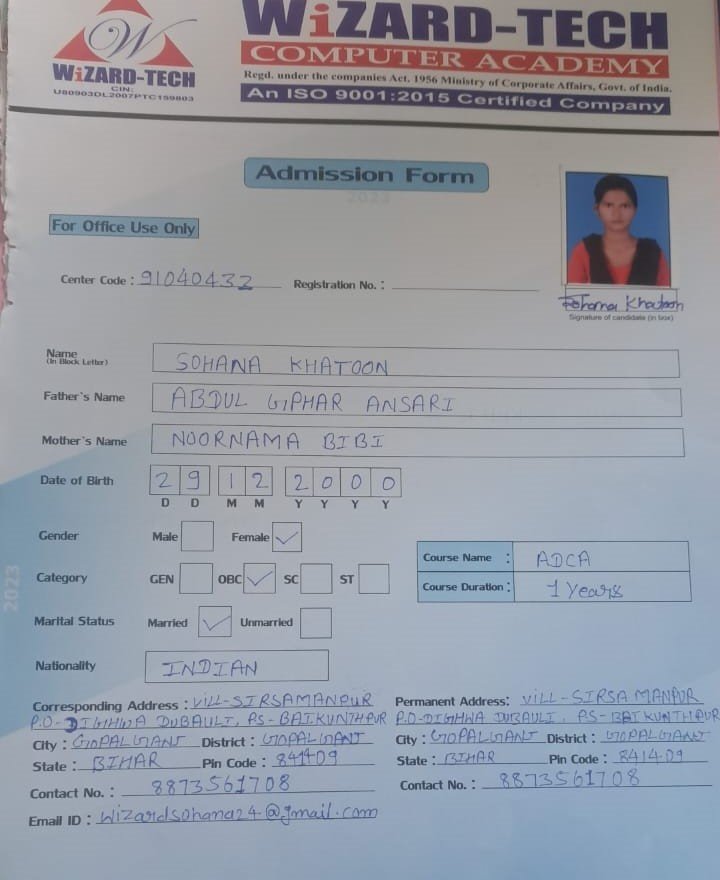 WiZARD-TECH
COMPUTER ACADEMY
Regd. under the companies Act. 1956 Ministry of Corporate Affairs, Govt. of India.
An ISO 9001:2015 Certified Company
W
WiZARD-TECH
CIN:
U80903DL2007PTC159803
Admission Form
2023
For Office Use Only
Center Code : 91040432 Registration No. :
Khatoon
Signature of candidate (in box)
Name SOHANA KHATOON
(In Block Letter)
Father's Name ABDUL GIPHAR ANSARI
Mother's Name NOORNAMA BIBI
Date of Birth 29 12 2000
D D M M Y Y Y Y
Gender Male Female ✓
Course Name : ADCA
Category GEN OBC ✓ SC ST
Course Duration : 1 Years
Marital Status Married ✓ Unmarried
Nationality INDIAN
2023
Corresponding Address : VILL-SIRSAMANPUR
P.O-DIGHWA DUBAULI, PS-BAIKUNTHPUR
City : GOPALGANJ District : GOPALGANJ
State : BIHAR Pin Code : 841409
Contact No. : 8873561708
Email ID : wizardsohana24@gmail.com
Permanent Address: VILL-SIRSA MANPUR
P.O-DIGHWA DUBAULI, PS-BAIKUNTHPUR
City : GOPALGANJ District : GOPALGANJ
State : BIHAR Pin Code : 841409
Contact No. : 8873561708